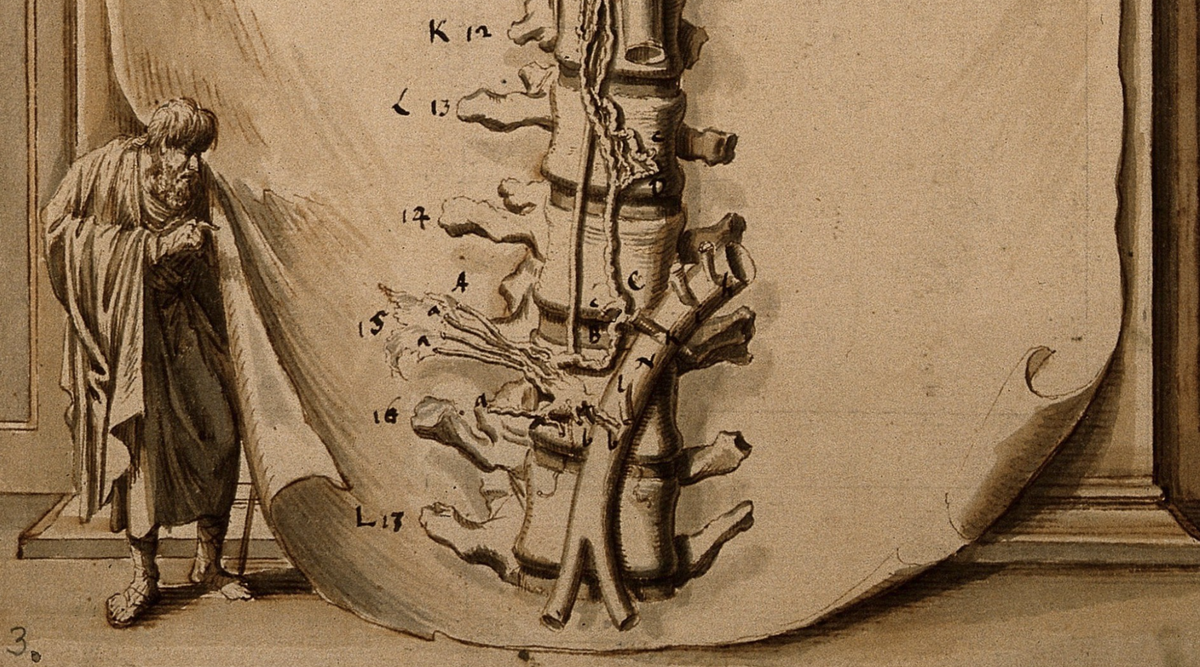 K 12
L 13
14
A
15
a
a
16
a
L 17
D
C
C
B
N
L
3.